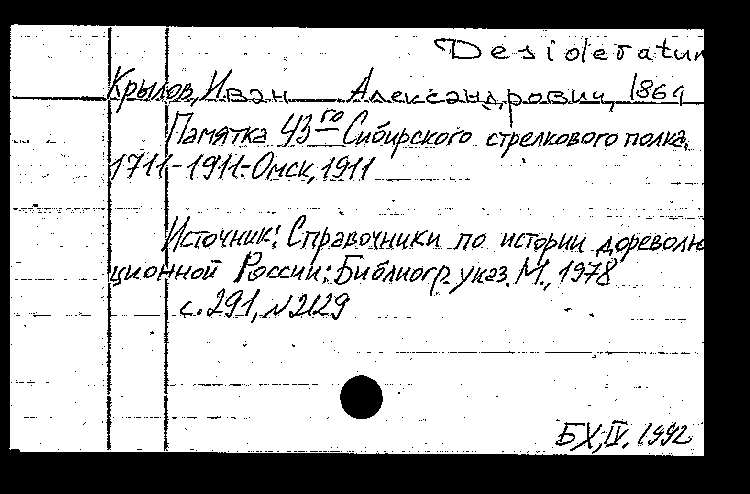 Desideratum
Крылов, Иван Александрович, 1864
Памятка 43го Сибирского стрелкового полка.
1711-1911-Омск, 1911
Источник: Справочники по истории дореволю
ционной России: Библиогр. указ. М., 1978
с. 291, № 2129
БХ, IV. 1992